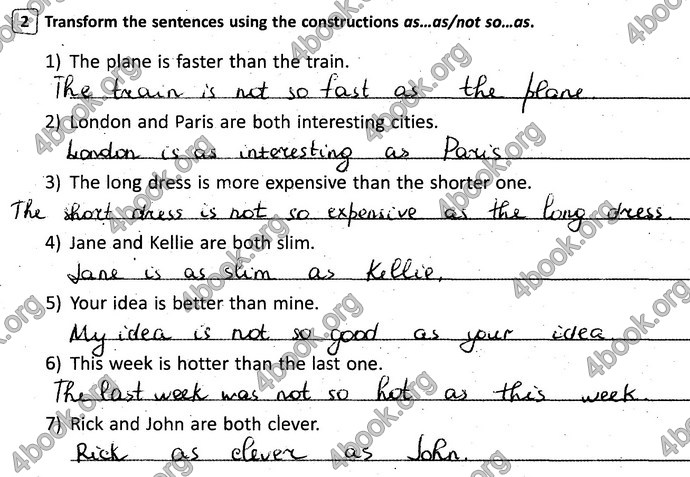 2 Transform the sentences using the constructions as...as/not so...as.
1) The plane is faster than the train.
The train is not so fast as the plane.
2) London and Paris are both interesting cities.
London is as interesting as Paris
3) The long dress is more expensive than the shorter one.
The short dress is not so expensive as the long dress.
4) Jane and Kellie are both slim.
Jane is as slim as Kellie.
5) Your idea is better than mine.
My idea is not so good as your idea.
6) This week is hotter than the last one.
The last week was not so hot as this week.
7) Rick and John are both clever.
Rick as clever as John.
4book.org